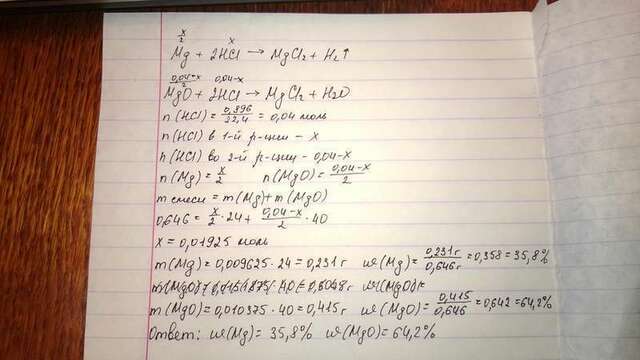 x/2 x
Mg + 2HCl → MgCl2 + H2↑
0,04-x/2 0,04-x
MgO + 2HCl → MgCl2 + H2O
n(HCl) = 0,896/22,4 = 0,04 моль
n(HCl) в 1-й р-ции - x
n(HCl) во 2-й р-ции - 0,04-x
n(Mg) = x/2 n(MgO) = 0,04-x/2
m смеси = m(Mg) + m(MgO)
0,646 = x/2 · 24 + 0,04-x/2 · 40
x = 0,01925 моль
m(Mg) = 0,009625 · 24 = 0,231 г w(Mg) = 0,231 г/0,646 г = 0,358 = 35,8%
m(MgO) = 0,010375 · 40 = 0,415 г w(MgO) = 0,415/0,646 = 0,642 = 64,2%
Ответ: w(Mg) = 35,8% w(MgO) = 64,2%